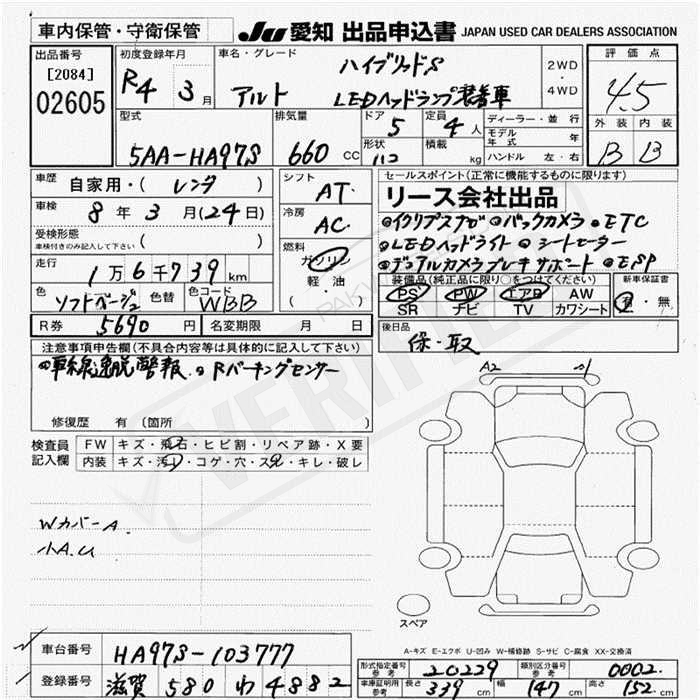 車内保管・守衛保管
JU 愛知 出品申込書 JAPAN USED CAR DEALERS ASSOCIATION
出品番号
[2084]
02605
初度登録年月
R4 3月
車名・グレード
アルト
ハイブリッドS
LEDヘッドランプ装着車
2WD
・
4WD
評価点
4.5
外装 内装
B B
型式
5AA-HA97S
排気量
660 CC
ドア
5
定員
4人
形状
積載
kg
ディーラー・並行
モデル年式 年
ハンドル 左・右
車歴 自家用・( レンタ )
車検 8年3月(24日)
受検形態
車検付きのみ記入して下さい ( )
走行 1万6千739km
色 ソフトベージュ 色替 色コード WBB
R券 5690円 名変期限 月 日
シフト
AT
冷房
AC
燃料
ガソリン
軽・油
( )
セールスポイント(正常に機能するものに限ります)
リース会社出品
◎イクリプスナビ ◎バックカメラ ◎ETC
◎LEDヘッドライト ◎シートヒーター
◎デュアルカメラブレーキサポート ◎ESP
装備品(純正品に限り○をつけてください) 新車保証書
PS PW エアB AW 有・無
SR ナビ TV カワシート
後日品
保・取
注意事項申告欄(不具合内容等は具体的に記入して下さい)
◎車線逸脱警報 ◎Rパーキングセンサー
修復歴 有(箇所 )
検査員記入欄
FW キズ・飛石・ヒビ割・リペア跡・X要
内装 キズ・汚れ・コゲ・穴・スレ・キレ・破レ
WカバーA
小A.U
A2
スペア
A-キズ E-エクボ U-凹み W-補修跡 S-サビ C-腐食 XX-交換済
車台番号 HA97S-103777
登録番号 滋賀 580 わ 4882
形式指定番号 参考 20229 類別区分番号 参考 0002
車庫証明用 参考 長さ 339cm 幅 147cm 高さ 152cm
PAKWHEELS
VERIFIED